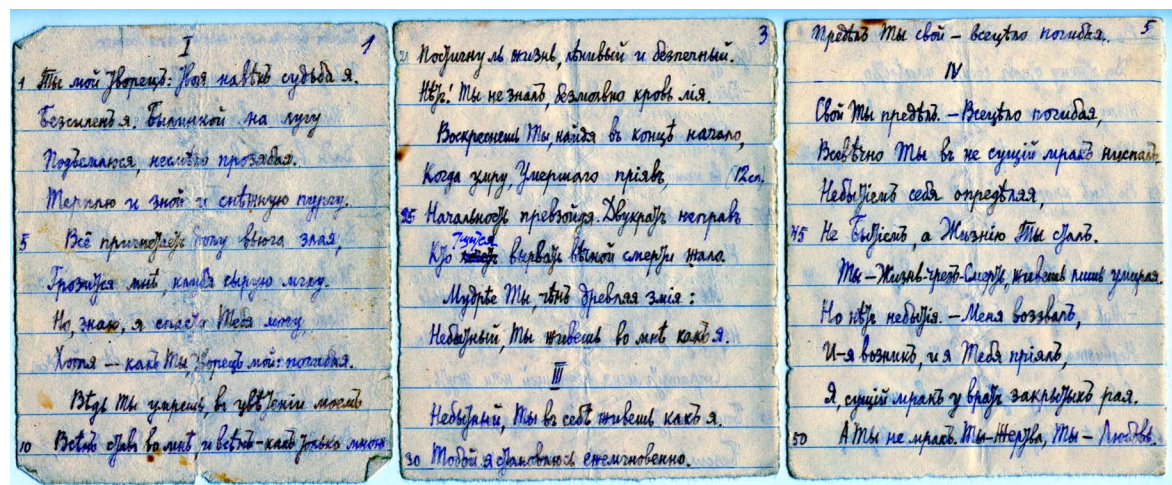 I 1
1 Ты мой Творецъ: Твоя навѣкъ судьба я.
Безсиленъ я. Былинкой на лугу
Подъемлюся, несмѣло прозябая.
Терплю и зной и снѣжную пургу.
5 Всё пригнетаетъ долу вьюга злая,
Грозится мнѣ, клубя сырую мглу.
Но, знаю, я спасти Тебя могу,
Хотя — какъ Ты, Творецъ мой: погибая.
Вѣдь Ты умрешь въ цвѣтеніи моемъ
10 Всѣмъ ставъ во мнѣ, и всѣмъ – какъ только мною
3
21 Постигнуль жизнь, лѣнивый и безпечный.
Нѣтъ! Ты не зналъ, безмолвно кровь лія.
Воскреснешь Ты, найдя въ концѣ начало,
Когда умру, Умершаго пріявъ, (12 сн.
25 Начальность превзойдя. Двукратъ неправъ
Кто тщится вырвать вѣчной смерти жало.
Мудрѣе Ты, чѣмъ древляя змія:
Небытный, Ты живешь во мнѣ какъ я.
III
Небытный, Ты въ себѣ живешь какъ я.
30 Тобой я становлюся ежемгновенно.
Предѣлъ Ты свой – всецѣло погибая. 5
IV
Свой Ты предѣлъ. – Всецѣло погибая,
Всевѣчно Ты въ не сущій мракъ ниспалъ
Небытіемъ себя опредѣляя,
45 Не Бытіемъ, а Жизнію Ты сталъ.
Ты – Жизнь-чрезъ-Смерть, живешь лишь умирая.
Но нѣтъ небытія. – Меня воззвалъ,
И – я возникъ, и я Тебя пріялъ,
Я, сущій мракъ у вратъ закрытыхъ рая.
50 А Ты не мракъ. Ты – Жертва, Ты – Любовь.